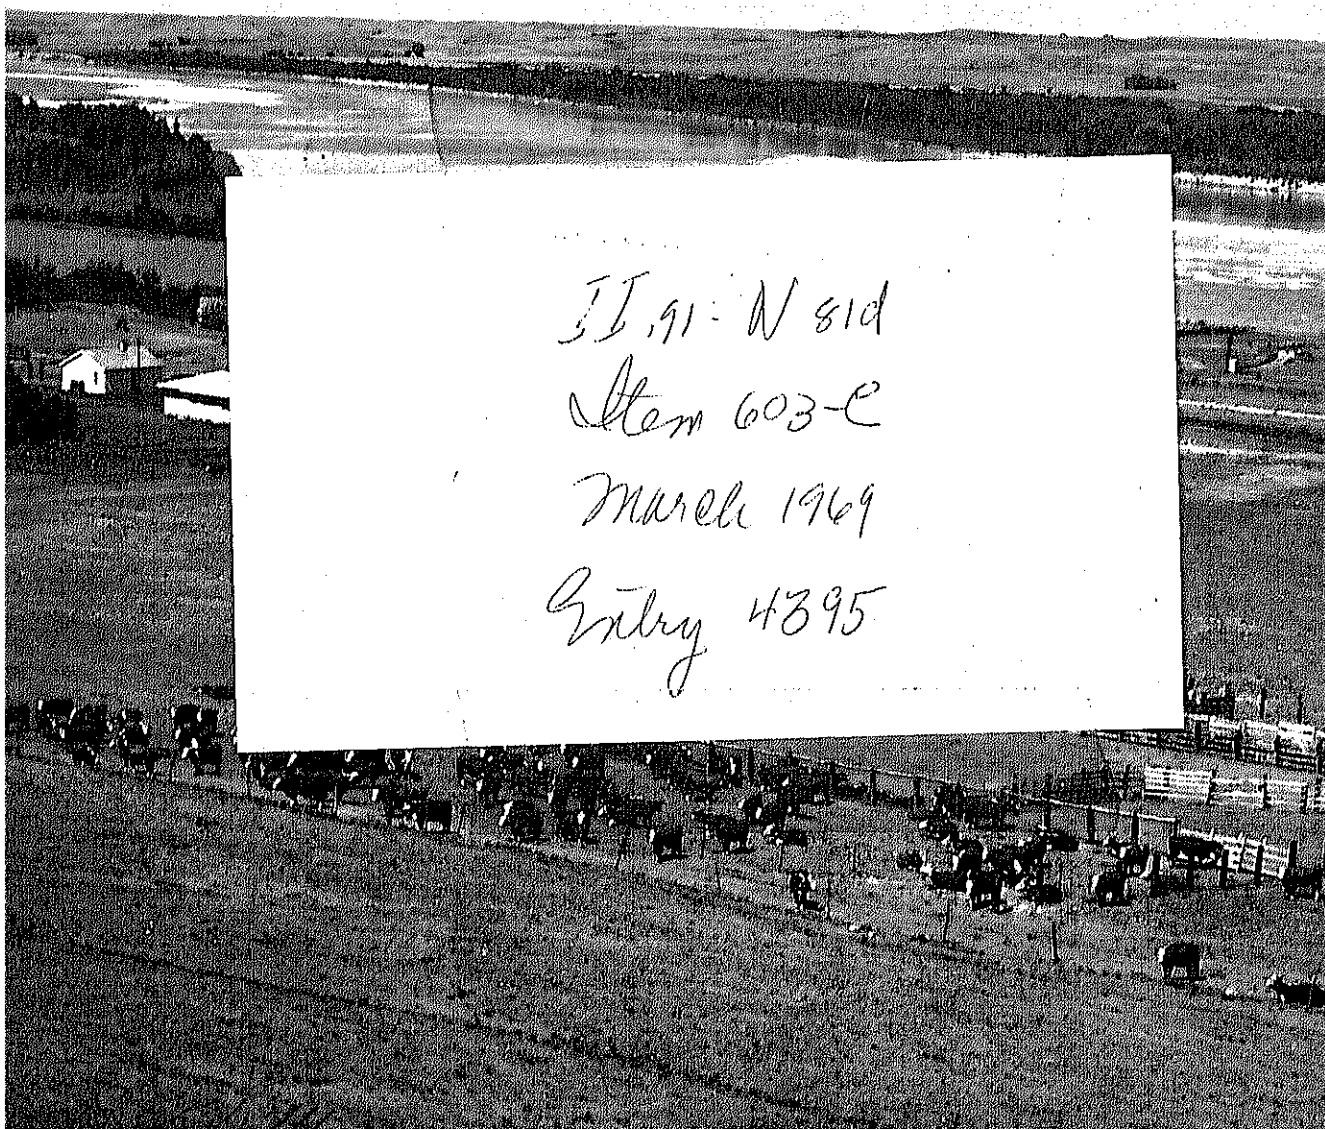 II.91: N 81d
Item 603-C
March 1969
Entry 4395